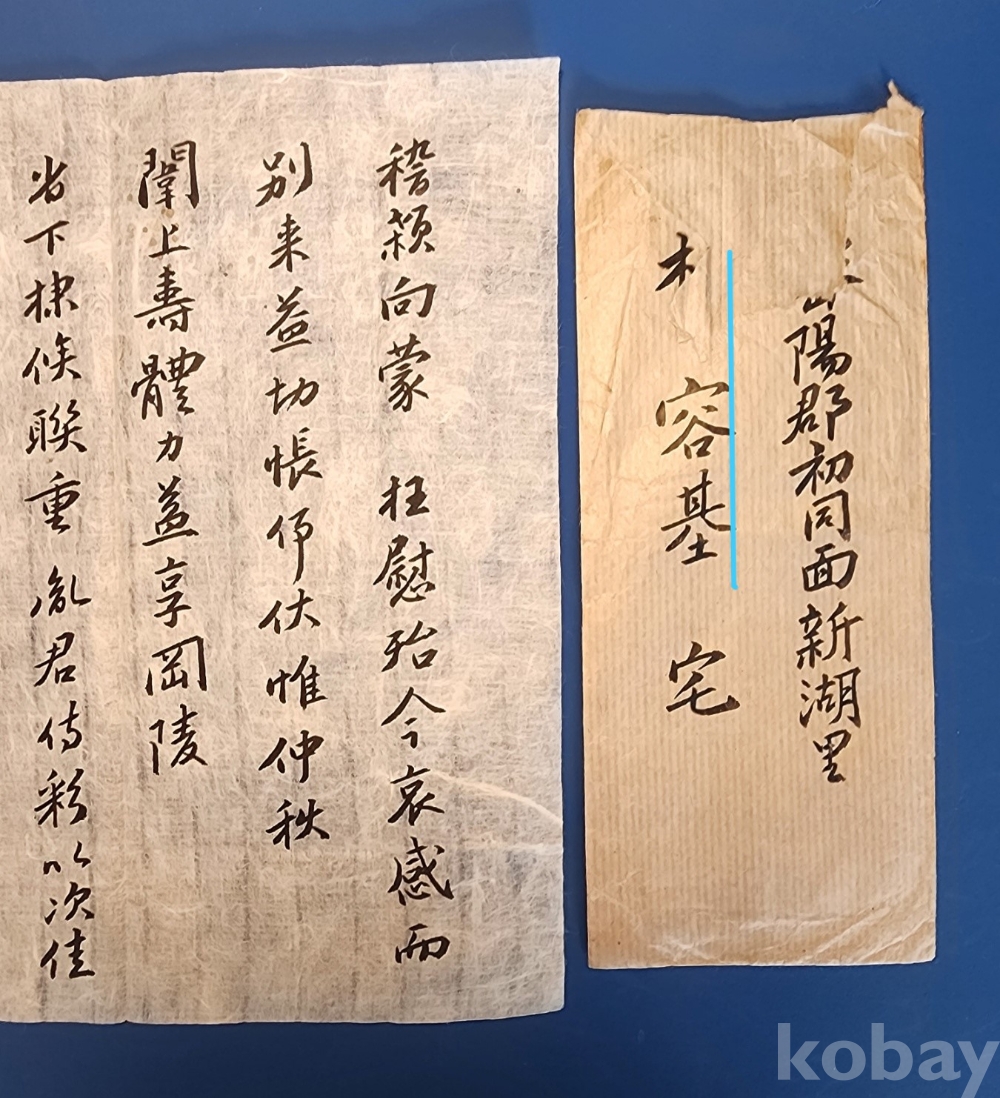 陽郡初同面新湖里
容基 宅
稽顙向蒙 枉慰殆今哀感而
別来益切悵伻伏惟仲秋
闈上壽體力益享岡陵
省下棣候聯重 胤君侍彩以次佳
kobay